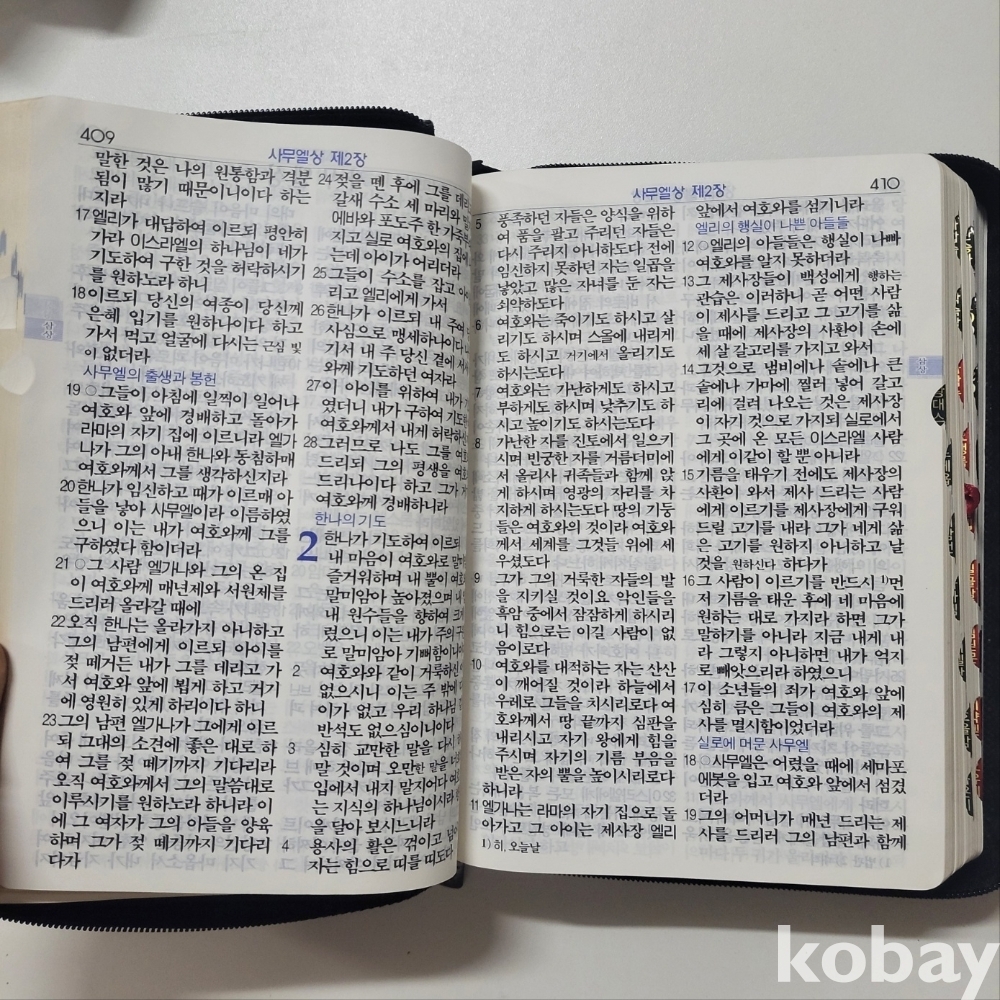 409
사무엘상 제2장
말한 것은 나의 원통함과 격분
됨이 많기 때문이니이다 하는
지라
17 엘리가 대답하여 이르되 평안히
가라 이스라엘의 하나님이 네가
기도하여 구한 것을 허락하시기
를 원하노라 하니
18 이르되 당신의 여종이 당신께
은혜 입기를 원하나이다 하고
가서 먹고 얼굴에 다시는 근심 빛
이 없더라
사무엘의 출생과 봉헌
19 ○그들이 아침에 일찍이 일어나
여호와 앞에 경배하고 돌아가
라마의 자기 집에 이르니라 엘가
나가 그의 아내 한나와 동침하매
여호와께서 그를 생각하신지라
20 한나가 임신하고 때가 이르매 아
들을 낳아 사무엘이라 이름하였
으니 이는 내가 여호와께 그를
구하였다 함이더라
21 ○그 사람 엘가나와 그의 온 집
이 여호와께 매년제와 서원제를
드리러 올라갈 때에
22 오직 한나는 올라가지 아니하고
그의 남편에게 이르되 아이를
젖 떼거든 내가 그를 데리고 가
서 여호와 앞에 뵙게 하고 거기
에 영원히 있게 하리이다 하니
23 그의 남편 엘가나가 그에게 이르
되 그대의 소견에 좋은 대로 하
여 그를 젖 떼기까지 기다리라
오직 여호와께서 그의 말씀대로
이루시기를 원하노라 하니라 이
에 그 여자가 그의 아들을 양육
하며 그가 젖 떼기까지 기다리
다가
24 젖을 뗀 후에 그를 데리
갈새 수소 세 마리와 밀
에바와 포도주 한 가죽부
지고 실로 여호와의 집에
는데 아이가 어리더라
25 그들이 수소를 잡고 아
리고 엘리에게 가서
26 한나가 이르되 내 주여
사심으로 맹세하나이다
기서 내 주 당신 곁에 서서
와께 기도하던 여자라
27 이 아이를 위하여 내가
였더니 내가 구하여 기도한
여호와께서 내게 허락하신
28 그러므로 나도 그를 여호
드리되 그의 평생을 여호
드리나이다 하고 그가 거
여호와께 경배하니라
한나의 기도
2 한나가 기도하여 이르되
내 마음이 여호와로 말미
즐거워하며 내 뿔이 여호
말미암아 높아졌으며 내
내 원수들을 향하여 크게
렸으니 이는 내가 주의 구
로 말미암아 기뻐함이니이
2 여호와와 같이 거룩하신
없으시니 이는 주 밖에
이가 없고 우리 하나님
반석도 없으심이니이다
3 심히 교만한 말을 다시
말 것이며 오만한 말을 너희
입에서 내지 말지어다 여호
는 지식의 하나님이시라
을 달아 보시느니라
4 용사의 활은 꺾이고 넘어
자는 힘으로 띠를 띠도다
사무엘상 제2장
410
5 풍족하던 자들은 양식을 위하
여 품을 팔고 주리던 자들은
다시 주리지 아니하도다 전에
임신하지 못하던 자는 일곱을
낳았고 많은 자녀를 둔 자는
쇠약하도다
6 여호와는 죽이기도 하시고 살
리기도 하시며 스올에 내리게
도 하시고 거기에서 올리기도
하시는도다
7 여호와는 가난하게도 하시고
부하게도 하시며 낮추기도 하
시고 높이기도 하시는도다
8 가난한 자를 진토에서 일으키
시며 빈궁한 자를 거름더미에
서 올리사 귀족들과 함께 앉
게 하시며 영광의 자리를 차
지하게 하시는도다 땅의 기둥
들은 여호와의 것이라 여호와
께서 세계를 그것들 위에 세
우셨도다
9 그가 그의 거룩한 자들의 발
을 지키실 것이요 악인들을
흑암 중에서 잠잠하게 하시리
니 힘으로는 이길 사람이 없
음이로다
10 여호와를 대적하는 자는 산산
이 깨어질 것이라 하늘에서
우레로 그들을 치시리로다 여
호와께서 땅 끝까지 심판을
내리시고 자기 왕에게 힘을
주시며 자기의 기름 부음을
받은 자의 뿔을 높이시리로다
하니라
11 엘가나는 라마의 자기 집으로 돌
아가고 그 아이는 제사장 엘리
1) 히. 오늘날
앞에서 여호와를 섬기니라
엘리의 행실이 나쁜 아들들
12 ○엘리의 아들들은 행실이 나빠
여호와를 알지 못하더라
13 그 제사장들이 백성에게 행하는
관습은 이러하니 곧 어떤 사람
이 제사를 드리고 그 고기를 삶
을 때에 제사장의 사환이 손에
세 살 갈고리를 가지고 와서
14 그것으로 냄비에나 솥에나 큰
솥에나 가마에 찔러 넣어 갈고
리에 걸려 나오는 것은 제사장
이 자기 것으로 가지되 실로에서
그 곳에 온 모든 이스라엘 사람
에게 이같이 할 뿐 아니라
15 기름을 태우기 전에도 제사장의
사환이 와서 제사 드리는 사람
에게 이르기를 제사장에게 구워
드릴 고기를 내라 그가 네게 삶
은 고기를 원하지 아니하고 날
것을 원하신다 하다가
16 그 사람이 이르기를 반드시 1)먼
저 기름을 태운 후에 네 마음에
원하는 대로 가지라 하면 그가
말하기를 아니라 지금 내게 내
라 그렇지 아니하면 내가 억지
로 빼앗으리라 하였으니
17 이 소년들의 죄가 여호와 앞에
심히 큼은 그들이 여호와의 제
사를 멸시함이었더라
실로에 머문 사무엘
18 ○사무엘은 어렸을 때에 세마포
에봇을 입고 여호와 앞에서 섬겼
더라
19 그의 어머니가 매년 드리는 제
사를 드리러 그의 남편과 함께
삼상
삼상
kobay